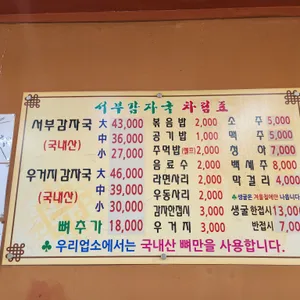 서부감자국 차림표
서부감자국 大 43,000
(국내산) 中 36,000
小 27,000
우거지감자국 大 46,000
(국내산) 中 39,000
小 30,000
뼈추가 18,000
볶음밥 2,000
공기밥 1,000
주먹밥(셀프) 2,000
음료수 2,000
라면사리 2,000
우동사리 2,000
감자한접시 3,000
우거지 3,000
소주 5,000
맥주 5,000
청하 7,000
백세주 8,000
막걸리 4,000
생굴은 겨울철에만 나옵니다
생굴한접시 13,00
반접시 7,00
♣ 우리업소에서는 국내산 뼈만을 사용합니다.